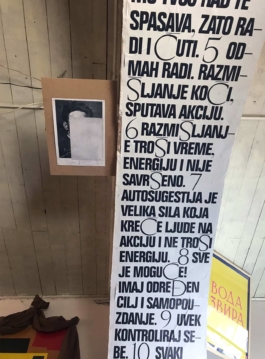 MO TVOJ RAD TE
SPASAVA, ZATO RA–
DI I ĆUTI. 5 OD–
MAH RADI. RAZMI–
ŠLJANJE KOČI,
SPUTAVA AKCIJU.
6 RAZMIŠLJANJ–
E TROŠI VREME,
ENERGIJU I NIJE
SAVRŠENO. 7
AUTOSUGESTIJA JE
VELIKA SILA KOJA
KREĆE LJUDE NA
AKCIJU I NE TROŠI
ENERGIJU. 8 SVE
JE MOGUĆE!
IMAJ ODREĐEN
CILJ I SAMOPOU–
ZDANJE. 9 UVEK
KONTROLIRAJ SE–
BE. 10 SVAKI
ВОДА
ЗВИРА